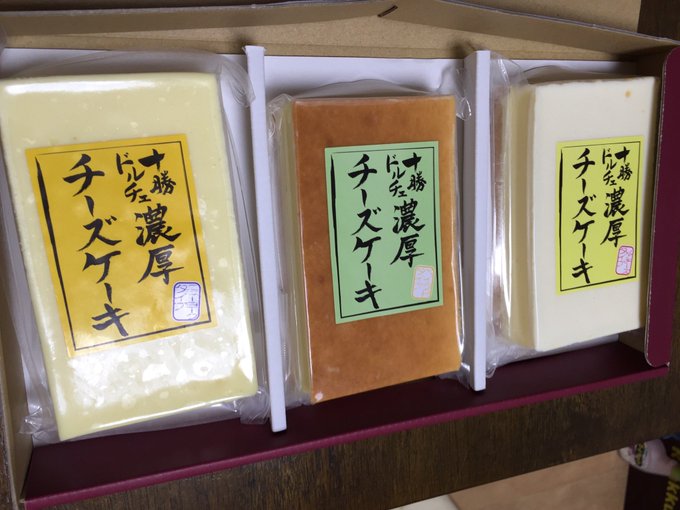 十勝
ドルチェ
濃厚
チーズケーキ
十勝
ドルチェ
濃厚
チーズケーキ
十勝
ドルチェ
濃厚
チーズケーキ